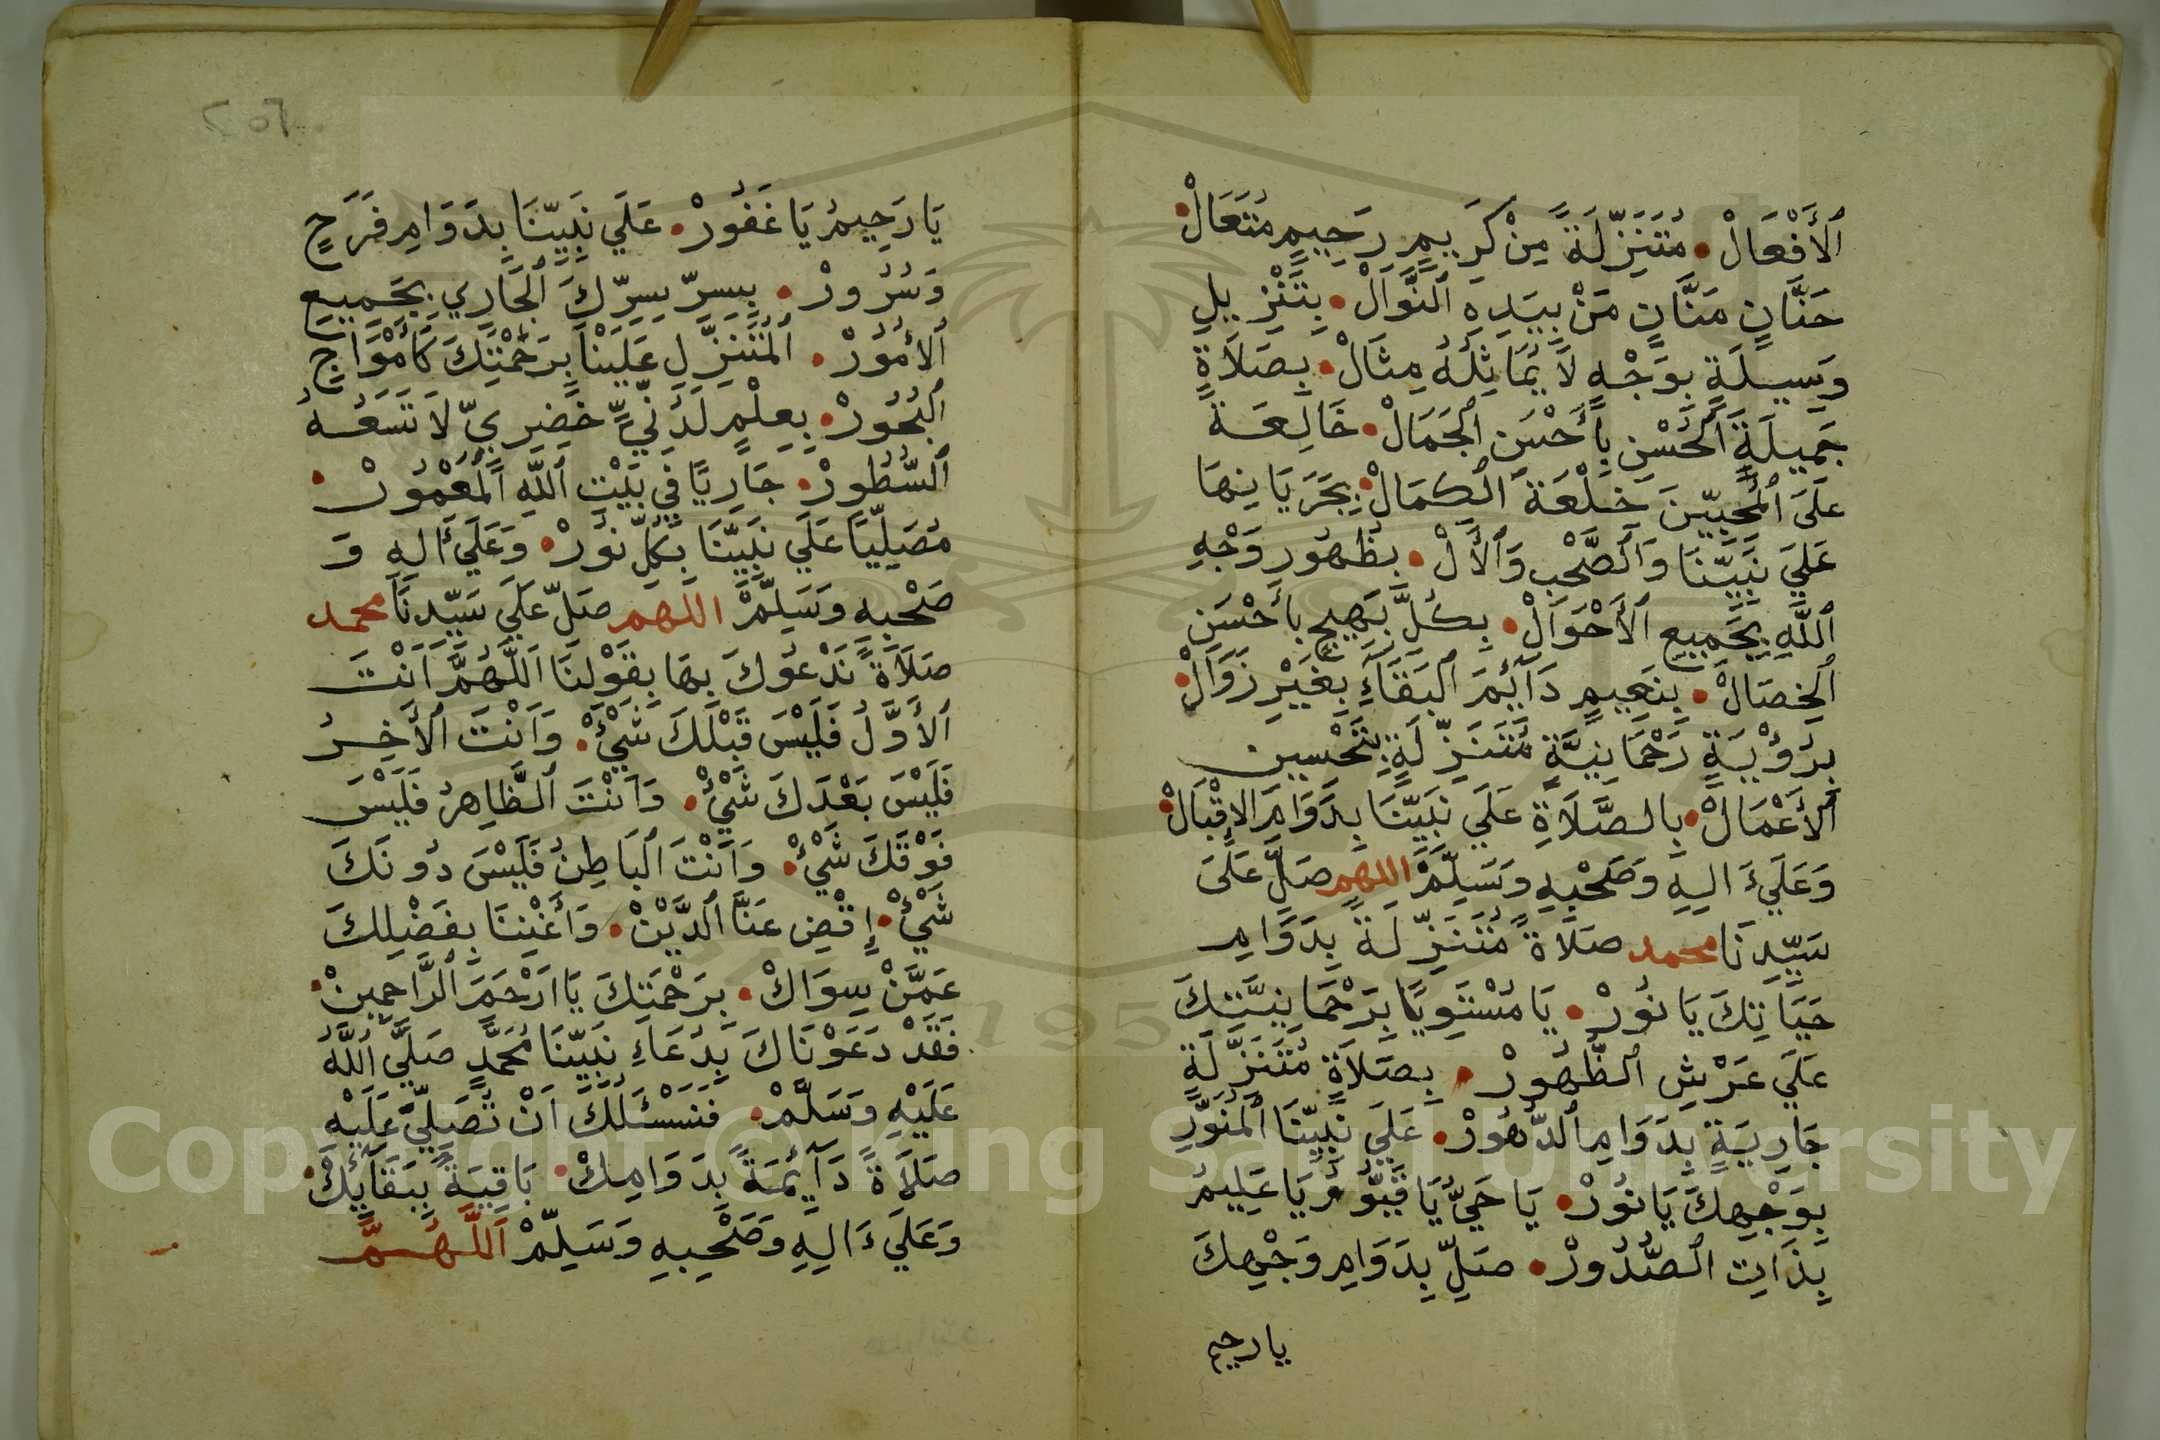 ٱلْأَفْعَالْ • مُتَنَزِّلَةً مِنْ كَرِيمٍ رَحِيمٍ مُتَعَالْ •
حَنَّانٍ مَنَّانٍ مَنْ بِيَدِهِ ٱلنَّوَالْ • بِتَنْزِيلِ
وَسِيلَةٍ بِوَجْهٍ لَا يُمَاثِلُهُ مِثَالْ • بِصَلَاةٍ
جَمِيلَةِ ٱلْحُسْنِ بِأَحْسَنِ ٱلْجَمَالْ • خَالِعَةً
عَلَى ٱلْمُحِبِّينَ خِلْعَةَ ٱلْكَمَالْ • بِجَرَيَانِهَا
عَلَي نَبِيِّنَا وَٱلصَّحْبِ وَٱلْأَلْ • بِظُهُورِ وَجْهِ
ٱللَّهِ بِجَمِيعِ ٱلْأَحْوَالْ • بِكُلِّ بَهِيجٍ بِأَحْسَنِ
ٱلْخِصَالْ • بِنَعِيمٍ دَآئِمِ ٱلْبَقَآءِ بِغَيْرِ زَوَالْ •
بِرُؤْيَةٍ رَحْمَانِيَّةٍ مُتَنَزِّلَةٍ بِتَحْسِينِ
ٱلْأَعْمَالْ • بِالصَّلَاةِ عَلَي نَبِيِّنَا بِدَوَامِ الإِقْبَالْ •
وَعَلَيءَ الِهِ وَصَحْبِهِ وَسَلِّمْ اللهم صَلِّ عَلَى
سَيِّدِنَا محمد صَلَاةً مُتَنَزِّلَةً بِدَوَامِ
حَيَاتِكَ يَا نُورْ • يَا مُسْتَوِيًا بِرَحْمَانِيَّتِكَ
عَلَي عَرْشِ ٱلظُّهُورْ • بِصَلَاةٍ مُتَنَزِّلَةٍ
جَارِيَةٍ بِدَوَامِ ٱلدُّهُورْ • عَلَي نَبِيِّنَا ٱلْمُنَوَّرِ
بِوَجْهِكَ يَا نُورْ • يَا حَيُّ يَا قَيُّومُ يَا عَلِيمُ
بِذَاتِ ٱلصُّدُورْ • صَلِّ بِدَوَامِ وَجْهِكَ
يا رحيم
٢٥٦
يَا رَحِيمُ يَا غَفُورْ • عَلَي نَبِيِّنَا بِدَوَامِ فَرَحٍ
وَسُرُورْ • بِسِرِّ سِرِّكَ ٱلْجَارِي بِجَمِيعِ
ٱلْأُمُورْ • ٱلْمُتَنَزِّلِ عَلَيْنَا بِرَحْمَتِكَ كَأَمْوَاجِ
ٱلْبُحُورْ • بِعِلْمٍ لَدُنِّيٍّ خَضِرِيٍّ لَا تَسَعُهُ
ٱلسُّطُورْ • جَارِيًا فِي بَيْتِ ٱللَّهِ ٱلْمَعْمُورْ •
مُصَلِّيًا عَلَي نَبِيِّنَا بِكُلِّ نُورْ • وَعَلَيأَالِهِ وَ
صَحْبِهِ وَسَلِّمْ اللهم صَلِّ عَلَي سَيِّدِنَا محمد
صَلَاةً نَدْعُوكَ بِهَا بِقَوْلِنَا ٱللَّهُمَّ أَنْتَ
ٱلْأَوَّلُ فَلَيْسَ قَبْلَكَ شَيْءْ • وَأَنْتَ ٱلْأَخِرُ
فَلَيْسَ بَعْدَكَ شَيْءْ • وَأَنْتَ ٱلظَّاهِرُ فَلَيْسَ
فَوْقَكَ شَيْءْ • وَأَنْتَ ٱلْبَاطِنُ فَلَيْسَ دُونَكَ
شَيْءْ • إِقْضِ عَنَّا ٱلدَّيْنْ • وَأَغْنِنَا بِفَضْلِكَ
عَمَّنْ سِوَاكْ • بِرَحْمَتِكَ يَا أَرْحَمَ ٱلرَّاحِمِينْ •
فَقَدْ دَعَوْنَاكَ بِدُعَاءِ نَبِيِّنَا مُحَمَّدٍ صَلَّي ٱللَّهُ
عَلَيْهِ وَسَلَّمْ • فَنَسْئَلُكَ أَنْ تُصَلِّيَ عَلَيْهِ
صَلَاةً دَآئِمَةً بِدَوَامِكْ • بَاقِيَةً بِبَقَآئِكْ •
وَعَلَيءَ الِهِ وَصَحْبِهِ وَسَلِّمْ ٱللَّهُمَّ